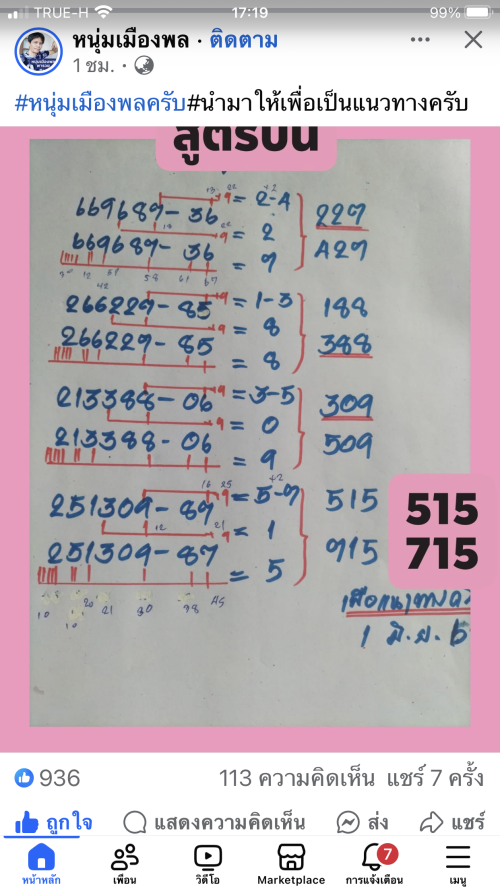 TRUE-H 17:19 99%
หนุ่มเมืองพล · ติดตาม
1 ชม. ·
#หนุ่มเมืองพลครับ#นำมาให้เพื่อเป็นแนวทางครับ
สูตรบน
13 22 +2
669689-36 9 = 2-4
18 22
9 = 2
669689-36 = 9
42 58 61 67
227
A27
266229-85 9 = 1-3
9 = 8
266229-85 = 8
188
388
213388-06 9 = 3-5
9 = 0
213388-06 = 9
309
509
16 25 +2
251309-87 9 = 5-7
12 21
9 = 1
251309-87 = 5
10 21 30 38 45
515
715
515
715
1 มิ.ย. 6
936 113 ความคิดเห็น แชร์ 7 ครั้ง
ถูกใจ แสดงความคิดเห็น ส่ง แชร์
7
หน้าหลัก เพื่อน วิดีโอ Marketplace การแจ้งเตือน เมนู